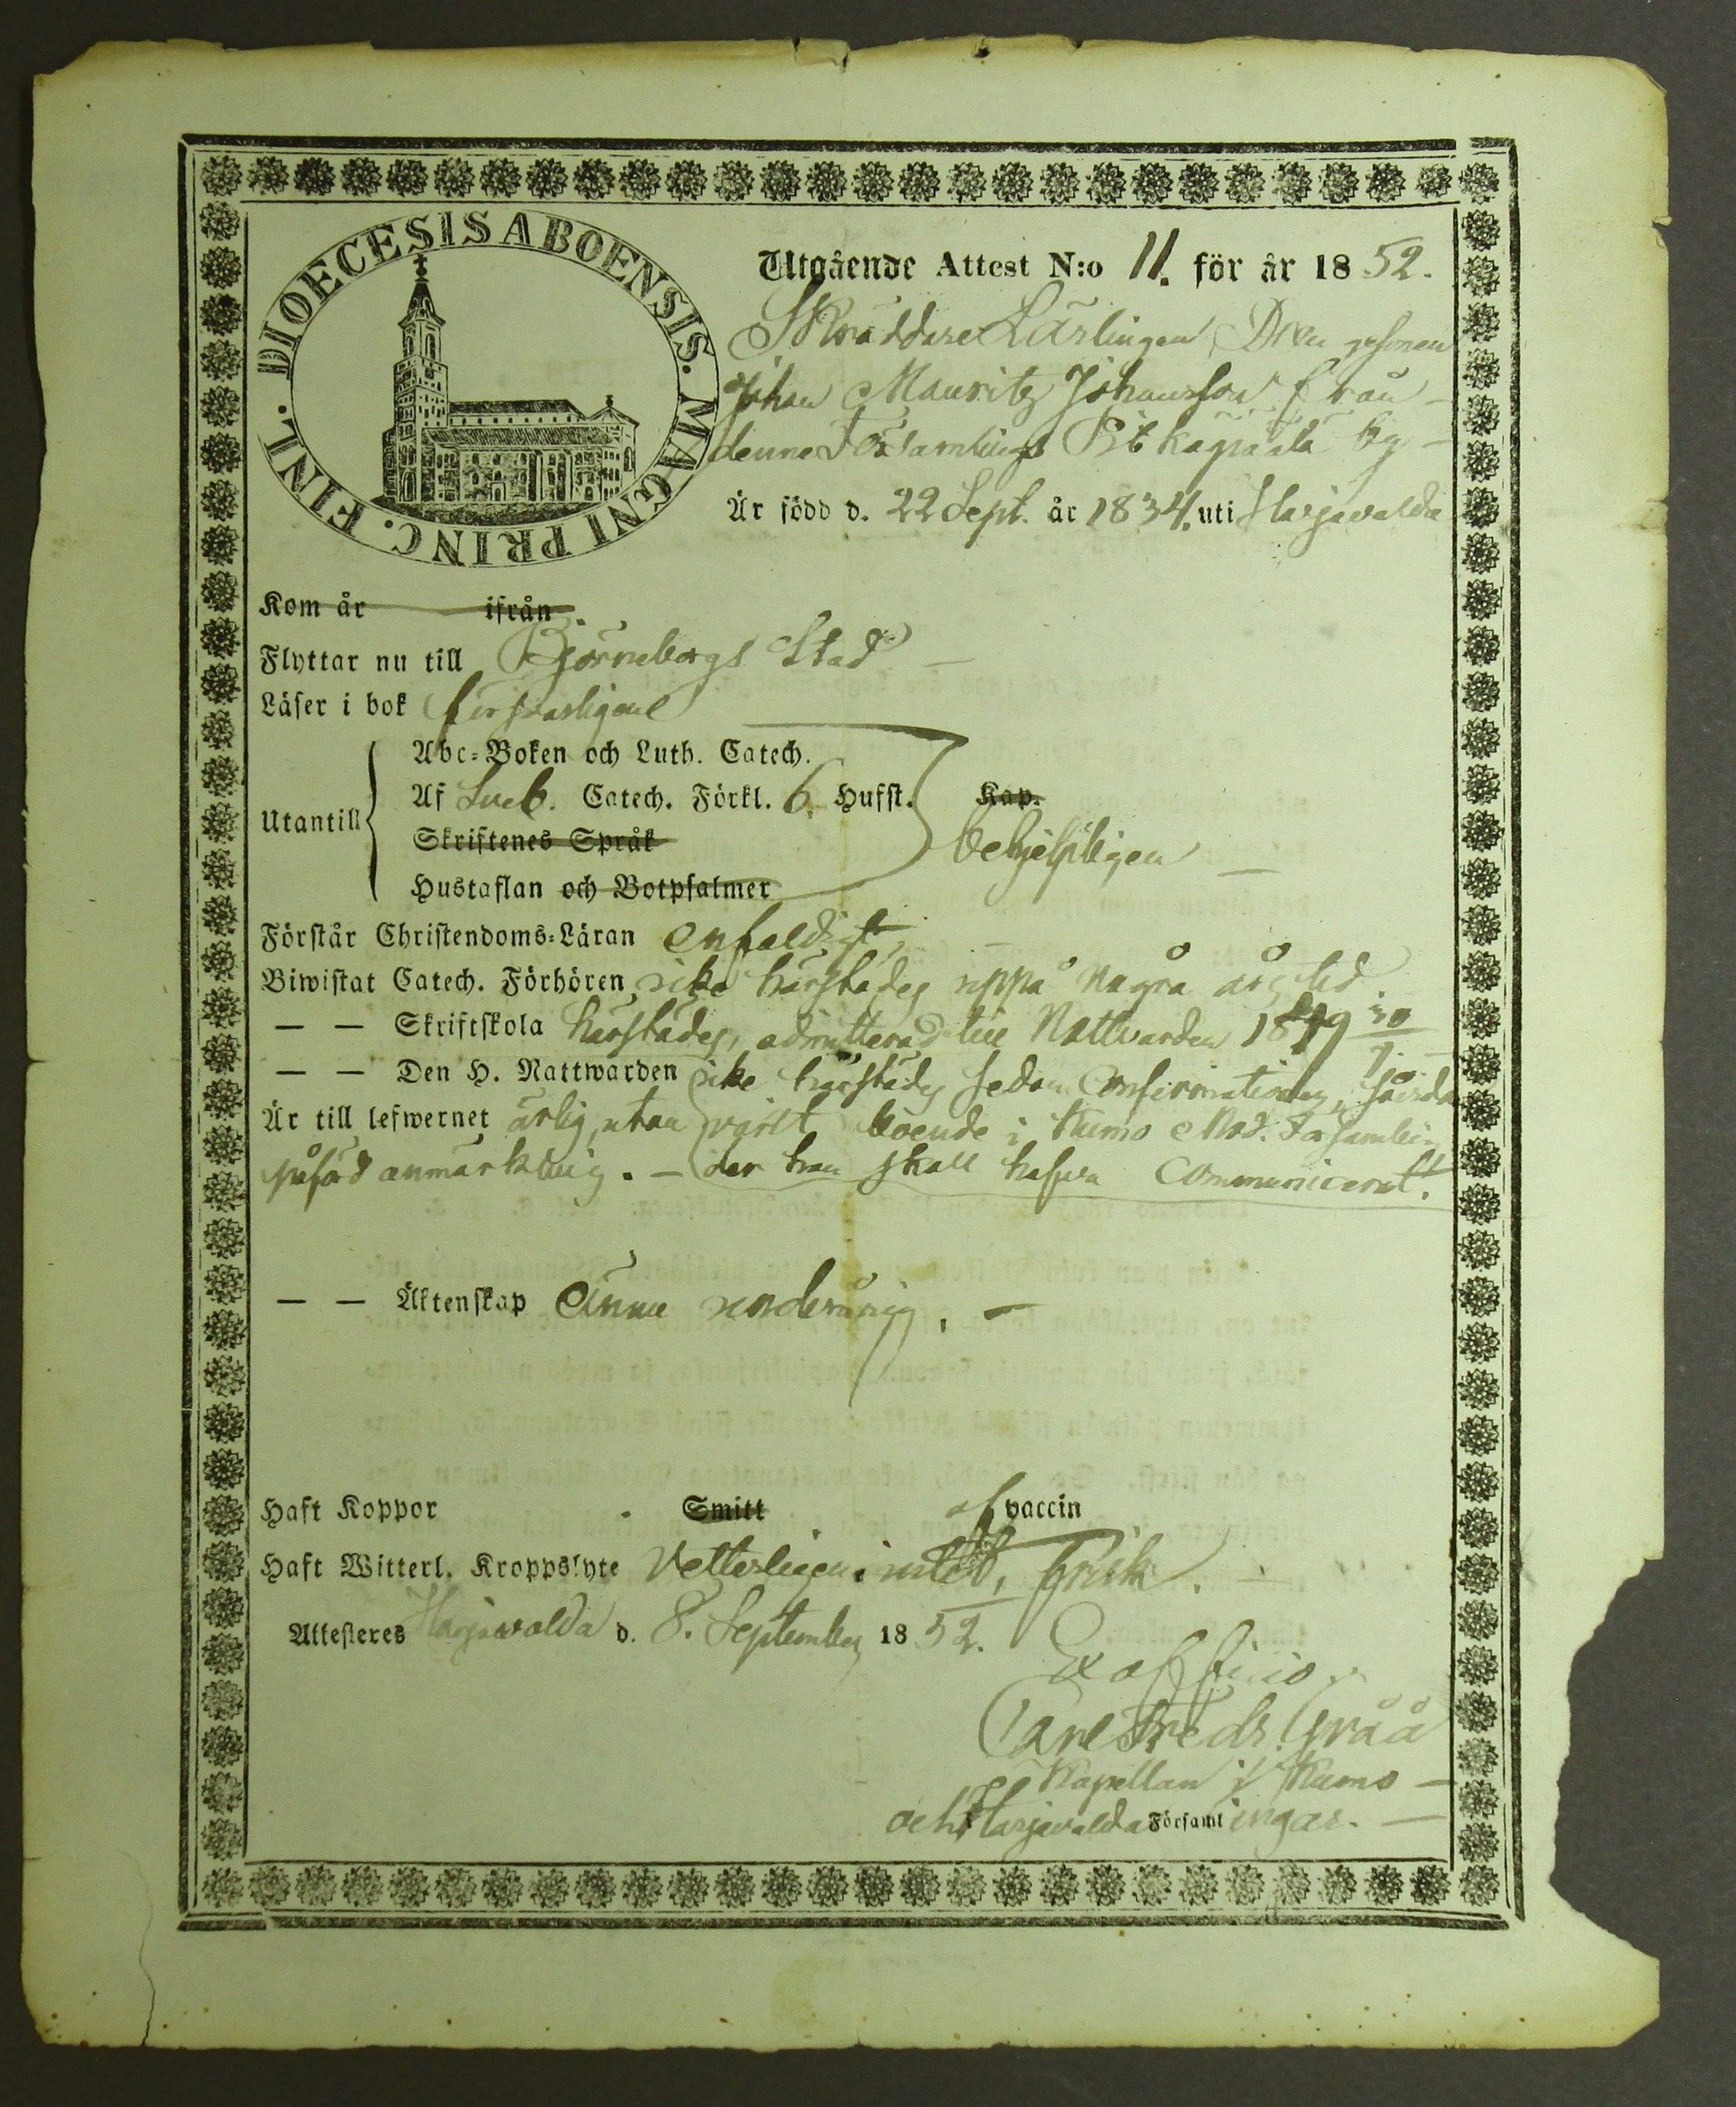 DIOECESIS ABOENSIS. MAGNI PRINC. FINL.
Utgående Attest N:o 11. för år 1852.
Skräddare Lärlingen, Drengen
Johan Mauritz Johansson från
denne Församlings Pitkäpäälä by
Är född d. 22 Sept. år 1834. uti Harjavalda
Kom år ifrån
Flyttar nu till Björneborgs Stad
Läser i bok försvarligen
Utantill
Abc-Boken och Luth. Catech.
Af Sveb. Catech. Förkl. 6. Hufst. Kap.
Skriftenes Språk
behjelpligen
Hustaflan och Botpsalmer
Förstår Christendoms-Läran enfaldigt,
Biwistat Catech. Förhören icke härstädes uppå några års tid.
— — Skriftskola härstädes, admitterad till Nattvarden 1849
— — Den H. Nattwarden icke härstädes sedan Confirmationen,
Är till lefwernet ärlig, utan varit boende i Kumo Mod. Församling
påförd anmärkning. — der han skall hafva Communicerat.
— — Äktenskap Ännu underårig. —
Haft Koppor Smitt af vaccin
Haft Witterl. Kroppslyte Vetterligen intet, frisk.
Attesteres Harjavalda d. 8. September 1852.
Ex officio
Carl Fredr. Gråå
Kapellan i Kumo
och Harjavalda Församlingar.